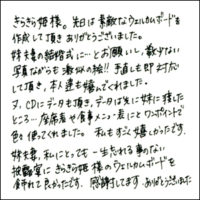 きらきら姫様。先日は素敵なウェルカムボードを
作成して頂きありがとうございました。
姉夫妻の結婚式に…とお願いし、数少ない
写真ながらも激似の絵!! 手直しも即対応
して頂き、本人達も喜んでくれました。
又、CDにデータも頂き、データは更に姉に渡した
ところ…座席表や食事メニュー表にとワンポイントで
色々使ってくれました。私もすごく嬉しかったです。
姉夫妻、私にとっても一生忘れる事のない
披露宴にきらきら姫様のウェルカムボードを
飾れて良かったです。感謝してます。ありがとうございました